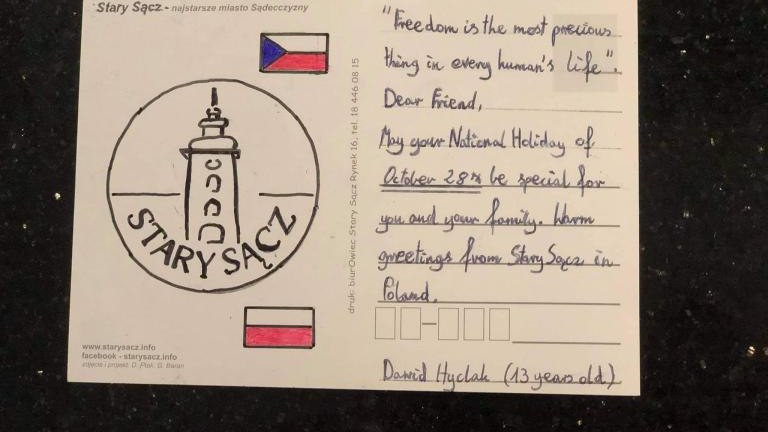 Stary Sącz - najstarsze miasto Sądecczyzny
STARY SĄCZ
www.starysacz.info
facebook - starysacz.info
zdjęcia i projekt: D. Ptak, G. Baran
druk: biurOwiec Stary Sącz Rynek 16, tel. 18 446 08 15
"Freedom is the most precious
thing in every human's life".
Dear Friend,
May your National Holiday of
October 28th be special for
you and your family. Warm
greetings from Stary Sącz in
Poland.
Dawid Hyclak (13 years old)